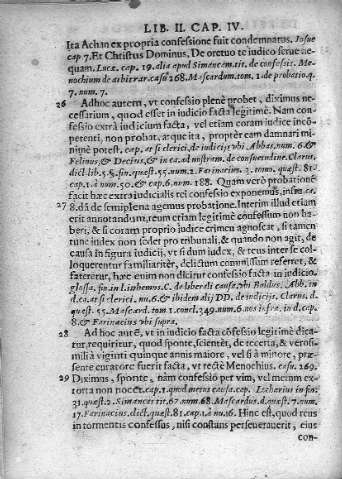 LIB. II. CAP. IV.
Ita Achan ex propria confessione fuit condemnatus. Iosue
cap 7. Et Christus Dominus, De ore tuo te iudico serue ne-
quam. Lucæ. cap. 19. alia apud Simancam tit. de confess. Me-
nochium de arbitrar. casu 268. Mascardum. tom. 1. de probatio. q.
7. num. 7.
26 Adhoc autem, vt confessio plenè probet, diximus ne-
cessarium, quod esset in iudicio facta legitimè. Nam con-
fessio extrà iudicium facta, vel etiam coram iudice incō-
petenti, non probat, æque ita, propter eam damnari mi-
nimè potest. cap. at si clerici, de iudicijs vbi Abbas, num. 6. &
Felinus & Decius, & in ca. ad nostram. de consuetudine. Clarus,
dict. lib. 5. §. fin. quæst. 55. num. 2. Farinacius. 3. tomo. quæst. 81.
cap. 1. à num. 50. & cap. 6. num. 188. Quam verò probationē
facit hæc extraiudicialis rei confessio exponemus, infra. ca.
27 8. dū de semiplena agemus probatione. Interim illud etiam
erit annotandum, reum etiam legitimè confessum non ha-
beri, & si coram proprio iudice crimen agnoscat, si tamen
tunc iudex non sedet pro tribunali, & quando non agit, de
causa in figura iudicij, vt si dum iudex, & reus inter se col-
loquerentur familiaritèr, delictum commissum referret, &
fateretur, hæc enim non dicitur confessio facta in iudicio.
glossa. fin. in l. in bonis. C. de liberali causa, vbi Baldus. Abb. in
d. ca. at si clerici. nu. 6. & ibidem alij DD. de iudicijs. Clarus. d.
quæst. 55. Mascard. tom 1. concl. 349. num. 6. nos infra. in d. cap.
8. & Farinacius vbi supra.
28 Ad hoc autē, vt in iudicio facta cōfessio legitimè dica-
tur, requiritur, quod sponte, scientèr, de re certa, & verosi-
mili à viginti quinque annis maiore, vel si à minore, præ-
sente curatore fuerit facta, vt rectè Menochius. casu. 269.
29 Diximus, sponte, nam confessio per vim, vel metum ex-
torta non nocet. cap. 1. quod metus causa. cap. Lotharius in fin.
31. quæst. 2. Simancas tit. 67. num. 68. Mascardus. d. quæst. 7. num.
17. Farinacius. dict. quæst. 81. cap. 1. à nu. 16. Hinc est, quod reus
in tormentis confessus, nisi constans perseuerauerit, eius
con-